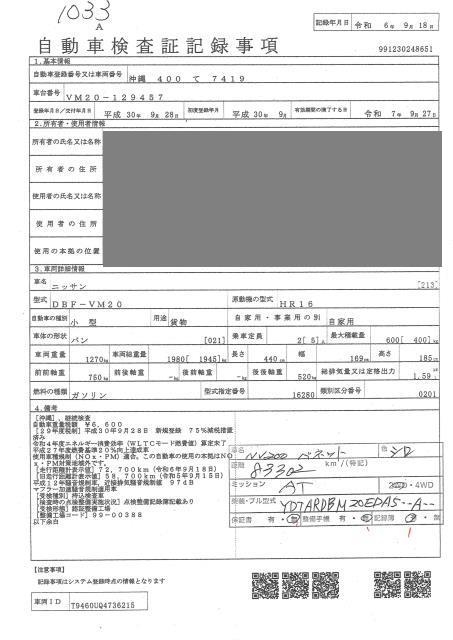 1033
A
記録年月日 令和 6年 9月18日
自動車検査証記録事項
991230248651
1.基本情報
自動車登録番号又は車両番号 沖縄 400 て 7419
車台番号 VM20-129457
登録年月日/交付年月日 平成 30年 9月 28日 初度登録年月 平成 30年 9月 有効期間の満了する日 令和 7年 9月27日
2.所有者・使用者情報
所有者の氏名又は名称
所有者の住所
使用者の氏名又は名称
使用者の住所
使用の本拠の位置
3.車両詳細情報
車名 ニッサン [213]
型式 DBF-VM20 原動機の型式 HR16
自動車の種別 小型 用途 貨物 自家用・事業用の別 自家用
車体の形状 バン [021] 乗車定員 2[ 5]人 最大積載量 600[ 400]kg
車両重量 1270kg 車両総重量 1980[ 1945]kg 長さ 440cm 幅 169cm 高さ 185cm
前前軸重 750kg 前後軸重 -kg 後前軸重 -kg 後後軸重 520kg 総排気量又は定格出力 1.59L
燃料の種類 ガソリン 型式指定番号 16280 類別区分番号 0201
4.備考
[沖縄],継続検査
自動車重量税額 ¥6,600
[29年度税制]平成30年9月28日 新規登録 75%減措置
済み
令和4年度エネルギー消費効率(WLTCモード燃費値)算定未了
平成27年度燃費基準20%向上達成車
使用車種規制(NOx・PM)適合、この自動車の使用の本拠はNO
x・PM対策地域外です。
[走行距離計表示値]72,700km(令和6年9月18日)
[旧走行距離計表示値]58,700km(令和5年9月15日)
平成12年騒音規制車,近接排気騒音規制値 97dB
マフラー加速騒音規制適用車
[受検種別]持込検査車
[検査時の点検整備実施状況]点検整備記録簿記載あり
[受検形態]認証整備工場
[整備工場コード]99-00388
以下余白
車名 NV200 バネット 色 シロ
距離 83302 km/(特記)
ミッション AT 2WD・4WD
架装・フル型式 YDTARDBM20EDA5--A--
保証書 有・無 整備手帳 有・無 記録簿 有・無
【注意事項】
記録事項はシステム登録時点の情報となります
車両ID T9460UQ4736215